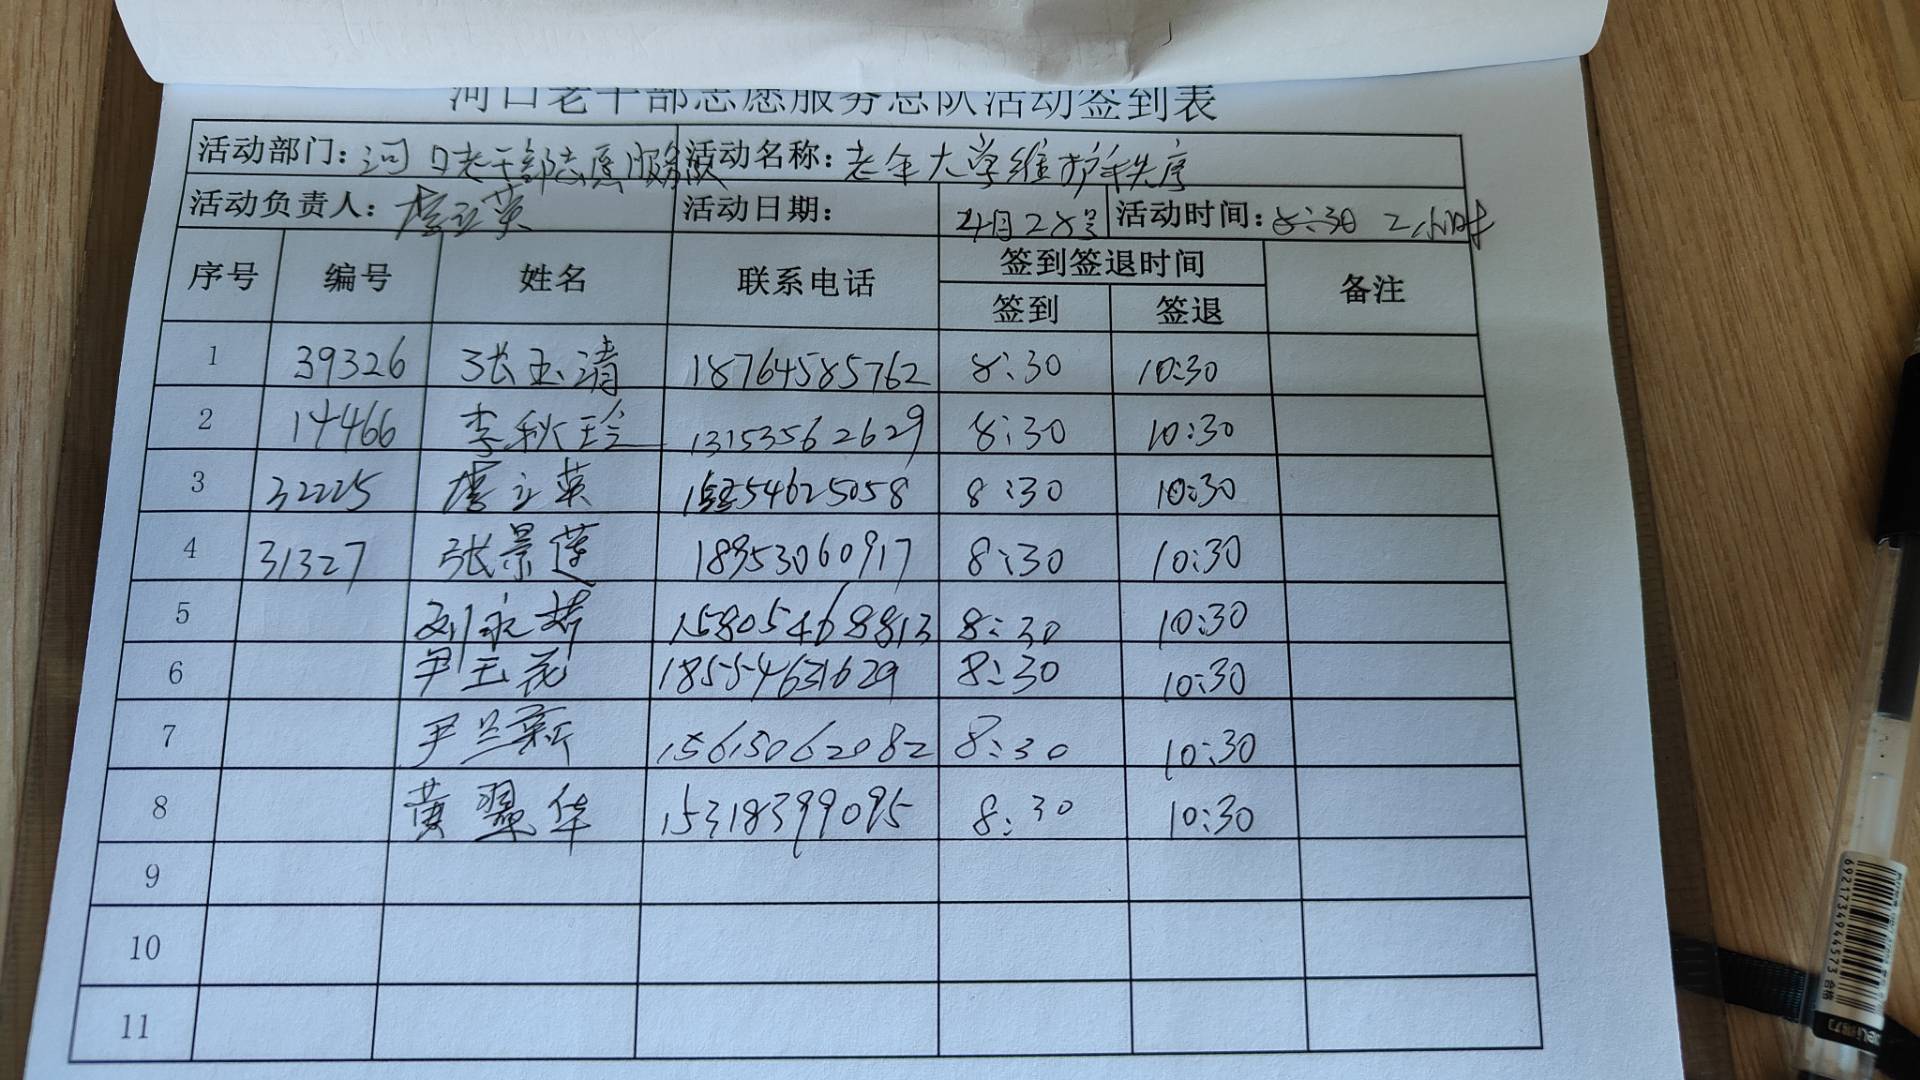 河口老干部志愿服务总队活动签到表
活动部门：河口老干部志愿服务队 活动名称：老年大学维护秩序
活动负责人：立英 活动日期：4月28号 活动时间：8:30 2小时
序号 编号 姓名 联系电话 签到签退时间 备注
签到 签退
1 39326 张玉清 18764585762 8:30 10:30
2 14466 李秋玲 13153562629 8:30 10:30
3 32225 立英 54625058 8:30 10:30
4 31327 张景莲 18953060917 8:30 10:30
5 刘永 15805468813 8:30 10:30
6 尹玉花 18554631629 8:30 10:30
7 尹兰新 15615062082 8:30 10:30
8 黄翠华 15318399095 8:30 10:30
9
10
11
6921734944573 合格
deli得力